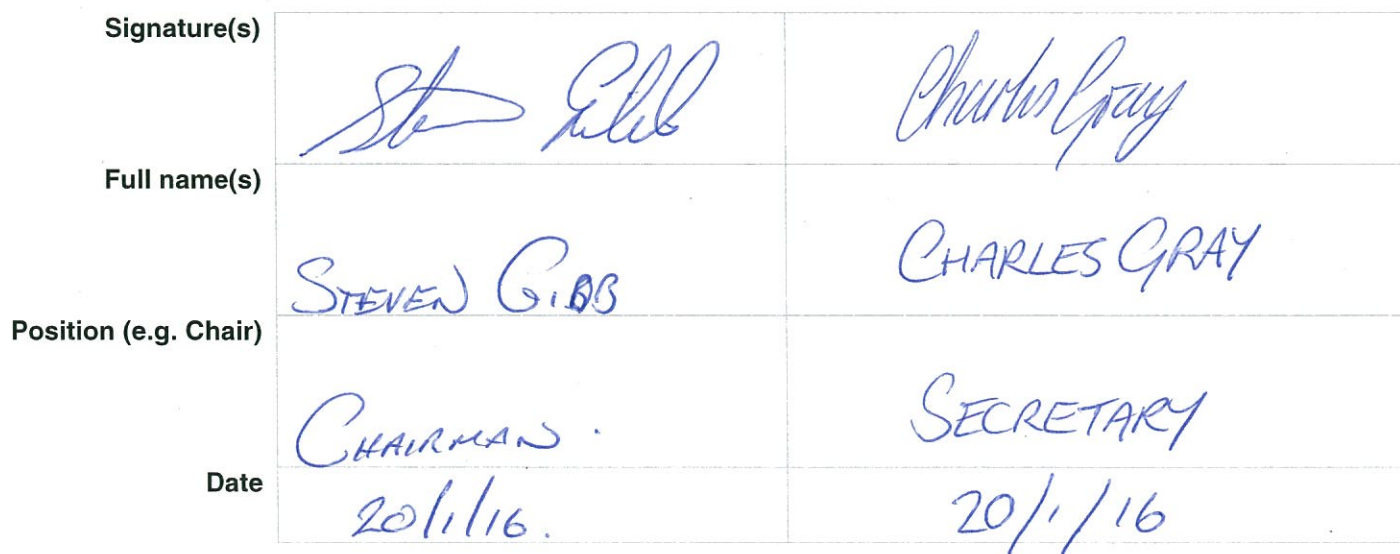 Signature(s)
Steven Gibb Charles Gray
Full name(s)
STEVEN GIBB CHARLES GRAY
Position (e.g. Chair)
CHAIRMAN. SECRETARY
Date
20/1/16. 20/1/16